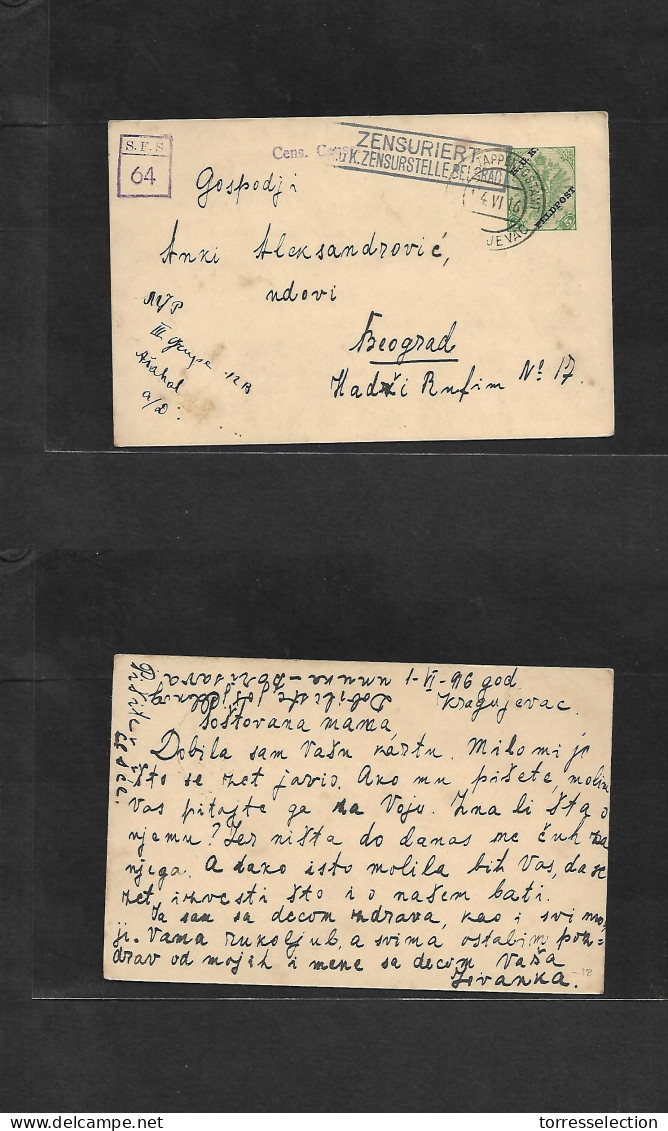 S. F. S.
64
Cens.
ZENSURIERT
K. ZENSURSTELLE BELGRAD
FELDPOST
Gospodji
Anki Aleksandrović,
udovi
Beograd
Hadži Rufim Nº 17.
III Grupa
1-VI-916 god
Kragujevac.
Poštovana mama
Dobila sam Vašu kartu. Milo mi je
što se zet javio. Ako mu pišete, molim
Vas pitajte ga za Voju. Zna li šta o
njemu? Jer ništa do danas ne čuh za
njega. A tako isto molila bih Vas, da se
zet, izvesti što i o našem bati.
Ja sam sa decom zdrava, kao i svi mo-
ji. Vama rukoljub, a svima ostalim poz-
drav od mojih i mene sa decom Vaša
Živanka.
-18
torresselection